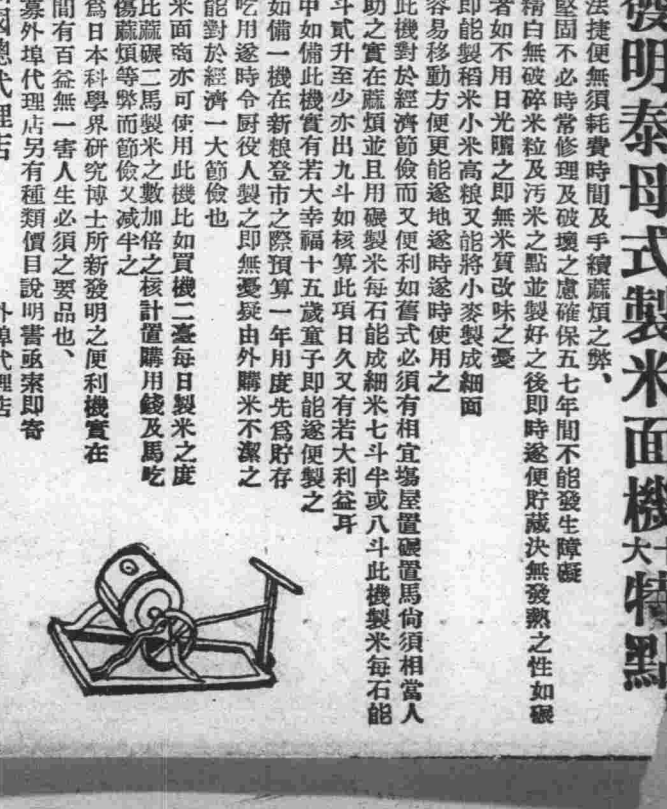 發明泰母式製米面機十大特點
法捷便無須耗費時間及手續蔴煩之弊、
堅固不必時常修理及破壞之慮確保五七年間不能發生障礙
精白無破碎米粒及汚米之點並製好之後即時遂便貯藏決無發熱之性如碾
者如不用日光曬之即無米質改味之憂
即能製稻米小米高粮又能將小麥製成細面
容易移動方便更能遂地遂時遂時使用之
此機對於經濟節儉而又便利如舊式必須有相宜塲屋置碾置馬倘須相當人
助之實在蔴煩並且用碾製米每石能成細米七斗半或八斗此機製米每石能
斗貳升至少亦出九斗如核算此項日久又有若大利益耳
中如備此機實有若大幸福十五歲童子即能遂便製之
如備一機在新粮登市之際預算一年用度先爲貯存
吃用遂時令厨役人製之即無憂疑由外購米不潔之
能對於經濟一大節儉也
米面商亦可使用此機比如買機二臺每日製米之度
比蔴碾二馬製米之數加倍之核計置購用錢及馬吃
傷蔴煩等弊而節儉又減半之
爲日本科學界研究博士所新發明之便利機實在
間有百益無一害人生必須之要品也、
募外埠代理店另有種類價目說明書亟索即寄
國總代理店 外埠代理店